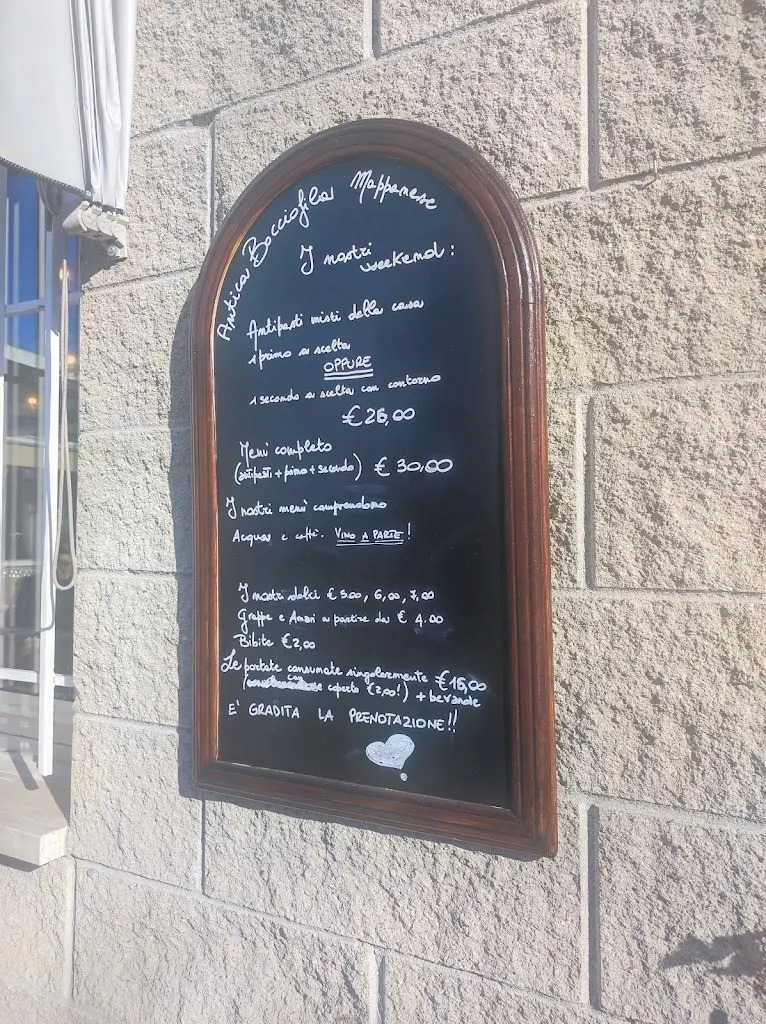 Antica Bocciofila Mappanese
I nostri
weekend:
Antipasti misti della casa
1 primo a scelta
OPPURE
1 secondo a scelta con contorno
€ 26,00
Menù completo
(antipasti + primo + secondo) € 30,00
I nostri menù comprendono
Acqua e caffè. VINO A PARTE!
I nostri dolci € 5.00, 6,00, 7,00
Grappe e Amari a partire da € 4.00
Bibite € 2,00
Le portate consumate singolarmente € 16,00
(con coperto € 2,00!) + bevande
E' GRADITA LA PRENOTAZIONE!!